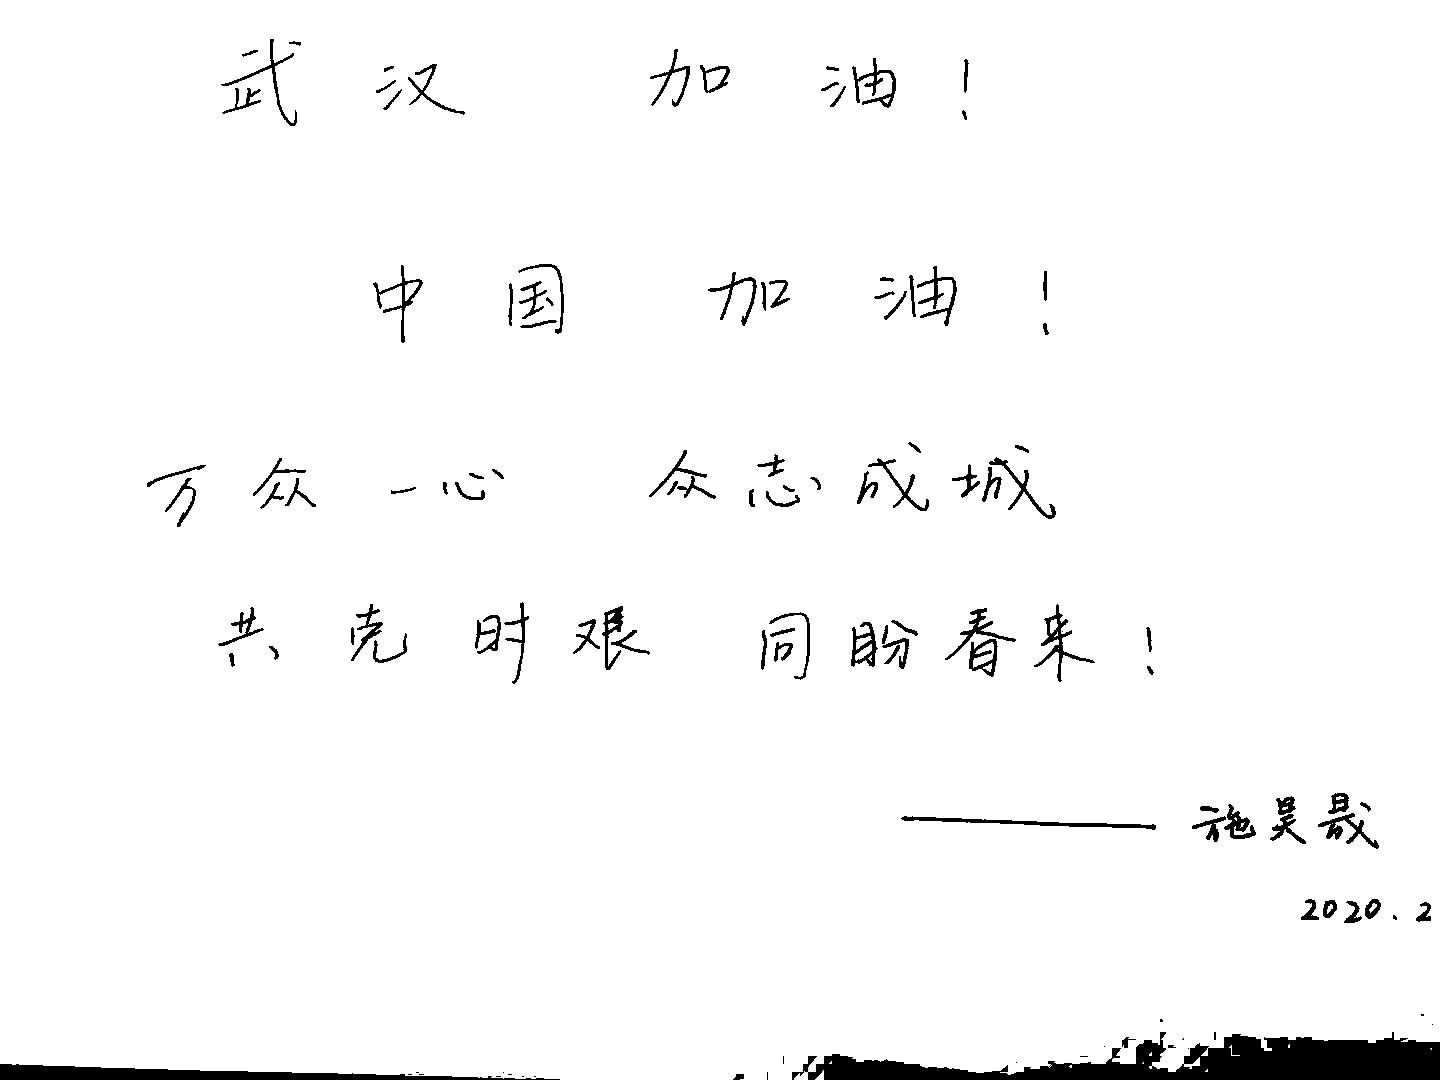 武汉 加油！
中国 加油！
万众一心 众志成城
共克时艰 同盼春来！
——施昊晟
2020.2